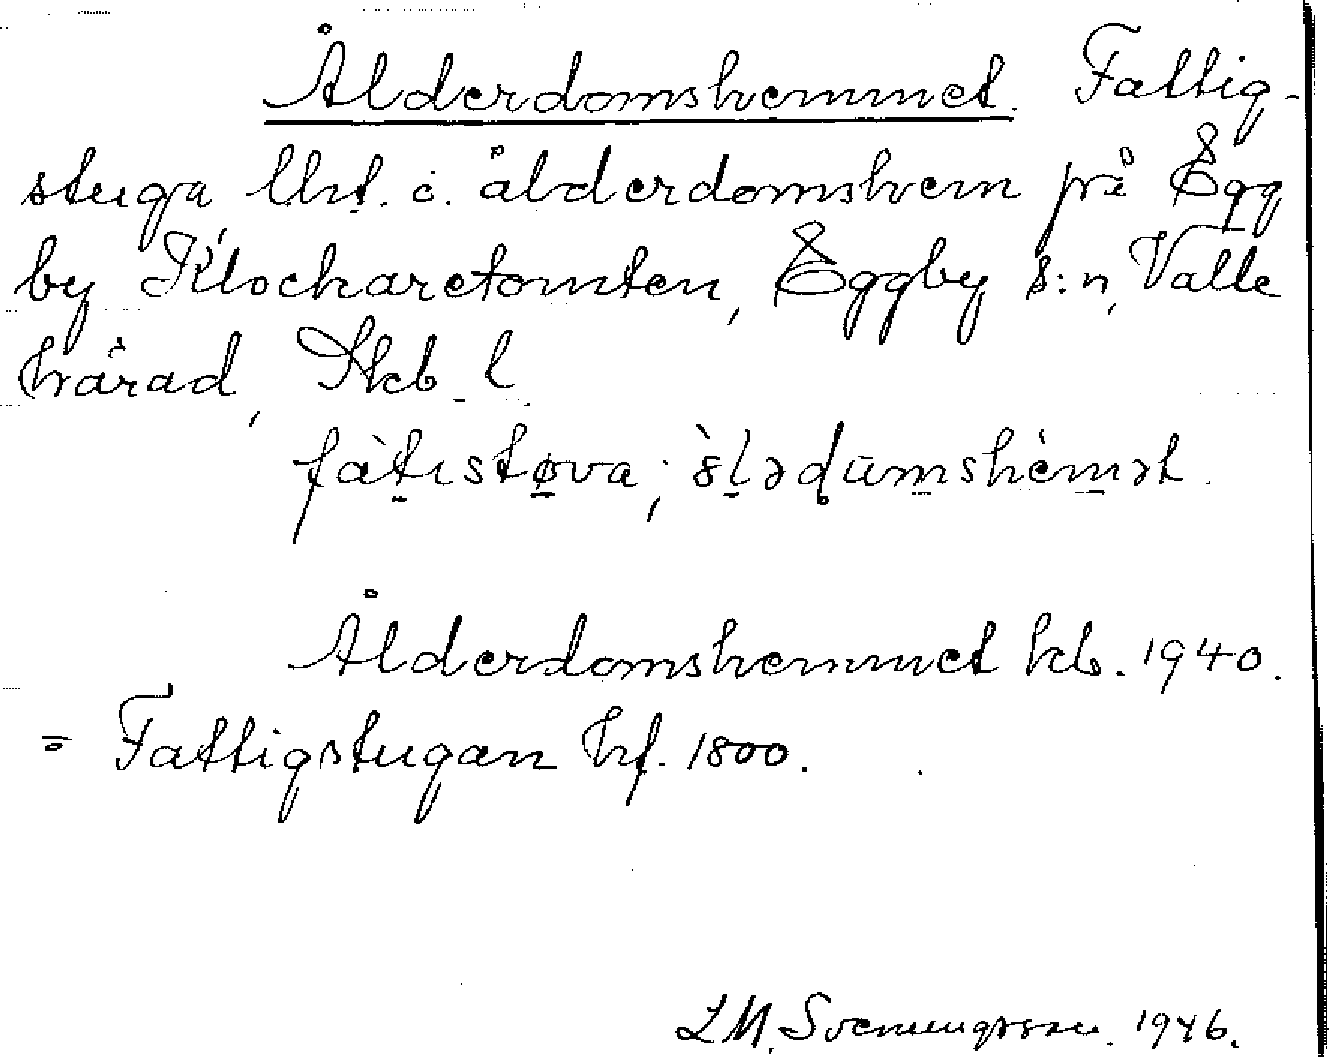 Ålderdomshemmet. Fattig-
stuga lhs. i. ålderdomshem på Egg
by Klockaretomten, Eggby s:n, Valle
härad, Skb. l.
fàtistøva; ålədumshèmət.
Ålderdomshemmet kb. 1940.
= Fattigstugan hf. 1800.
L M. Svenungsson. 1946.